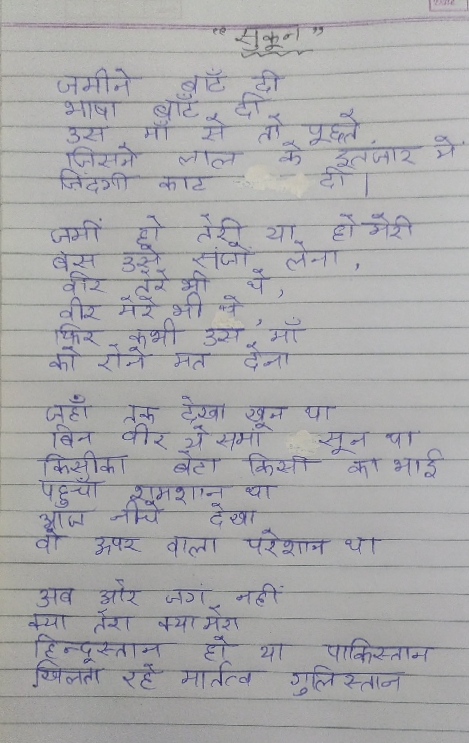 "सुकून"
जमीने बाँट दी
भाषा बाँट दी
उस माँ से तो पूछते
जिसने लाल के इतंजार में
जिंदगी काट दी।
जमीं हो तेरी या हो मेरी
बस उसे संजों लेना,
वीर तेरे भी थे,
वीर मेरे भी थे,
फिर कभी उस माँ
को रोने मत देना
जहाँ तक देखा खून था
बिन वीर ये समा सून था
किसीका बेटा किसी का भाई
पहुचाँ शमशान था
आज नीचे देखा
वो ऊपर वाला परेशान था
अब और जगं नहीं
क्या तेरा क्या मेरा
हिन्दूस्तान हो या पाकिस्तान
खिलता रहे मार्तत्व गुलिस्तान